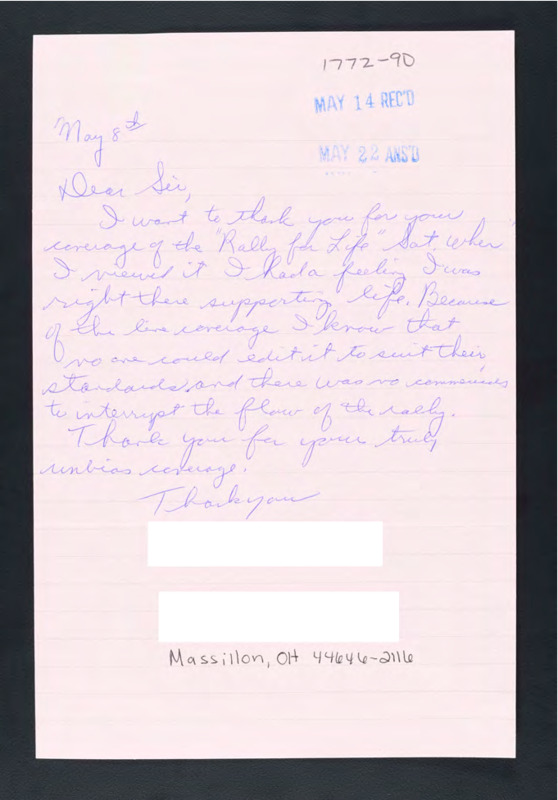 1772-90
MAY 14 REC'D
MAY 22 ANS'D
May 8th
Dear Sir,
I want to thank you for your
coverage of the "Rally for Life" Sat. When
I viewed it I had a feeling I was
right there supporting life. Because
of the live coverage I know that
no one could edit it to suit their
standards and there was no commercials
to interrupt the flow of the rally.
Thank you for your truly
unbias coverage.
Thank you
Massillon, OH 44646-2116